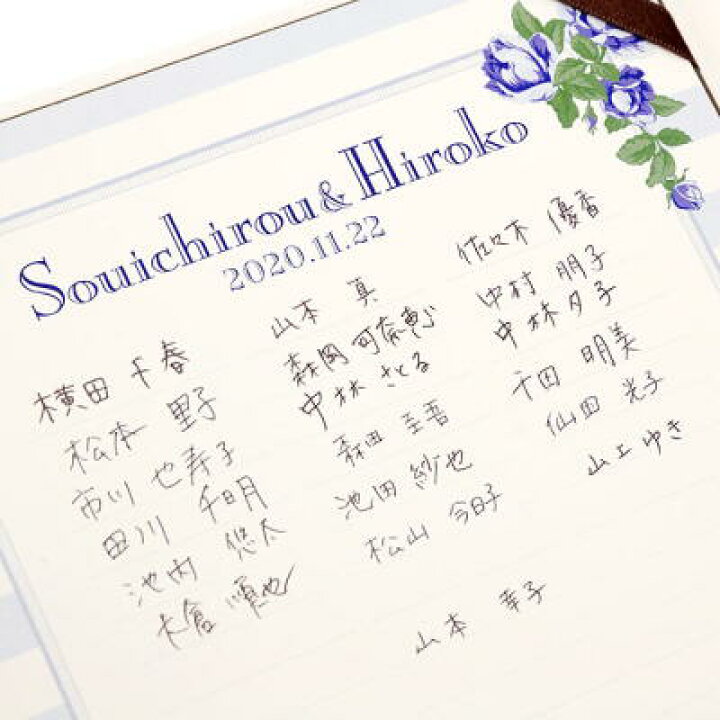 Souichirou & Hiroko
2020.11.22
横田 千春
松本 里子
市川 也寿子
田川 千明
池内 悠太
大倉 順也
山本 真
森岡 可奈恵
中林 さとる
森田 圭吾
池田 紗也
松山 今日子
山本 幸子
佐々木 優香
中村 朋子
中林 夕子
千田 明美
仙田 光子
山上 ゆき